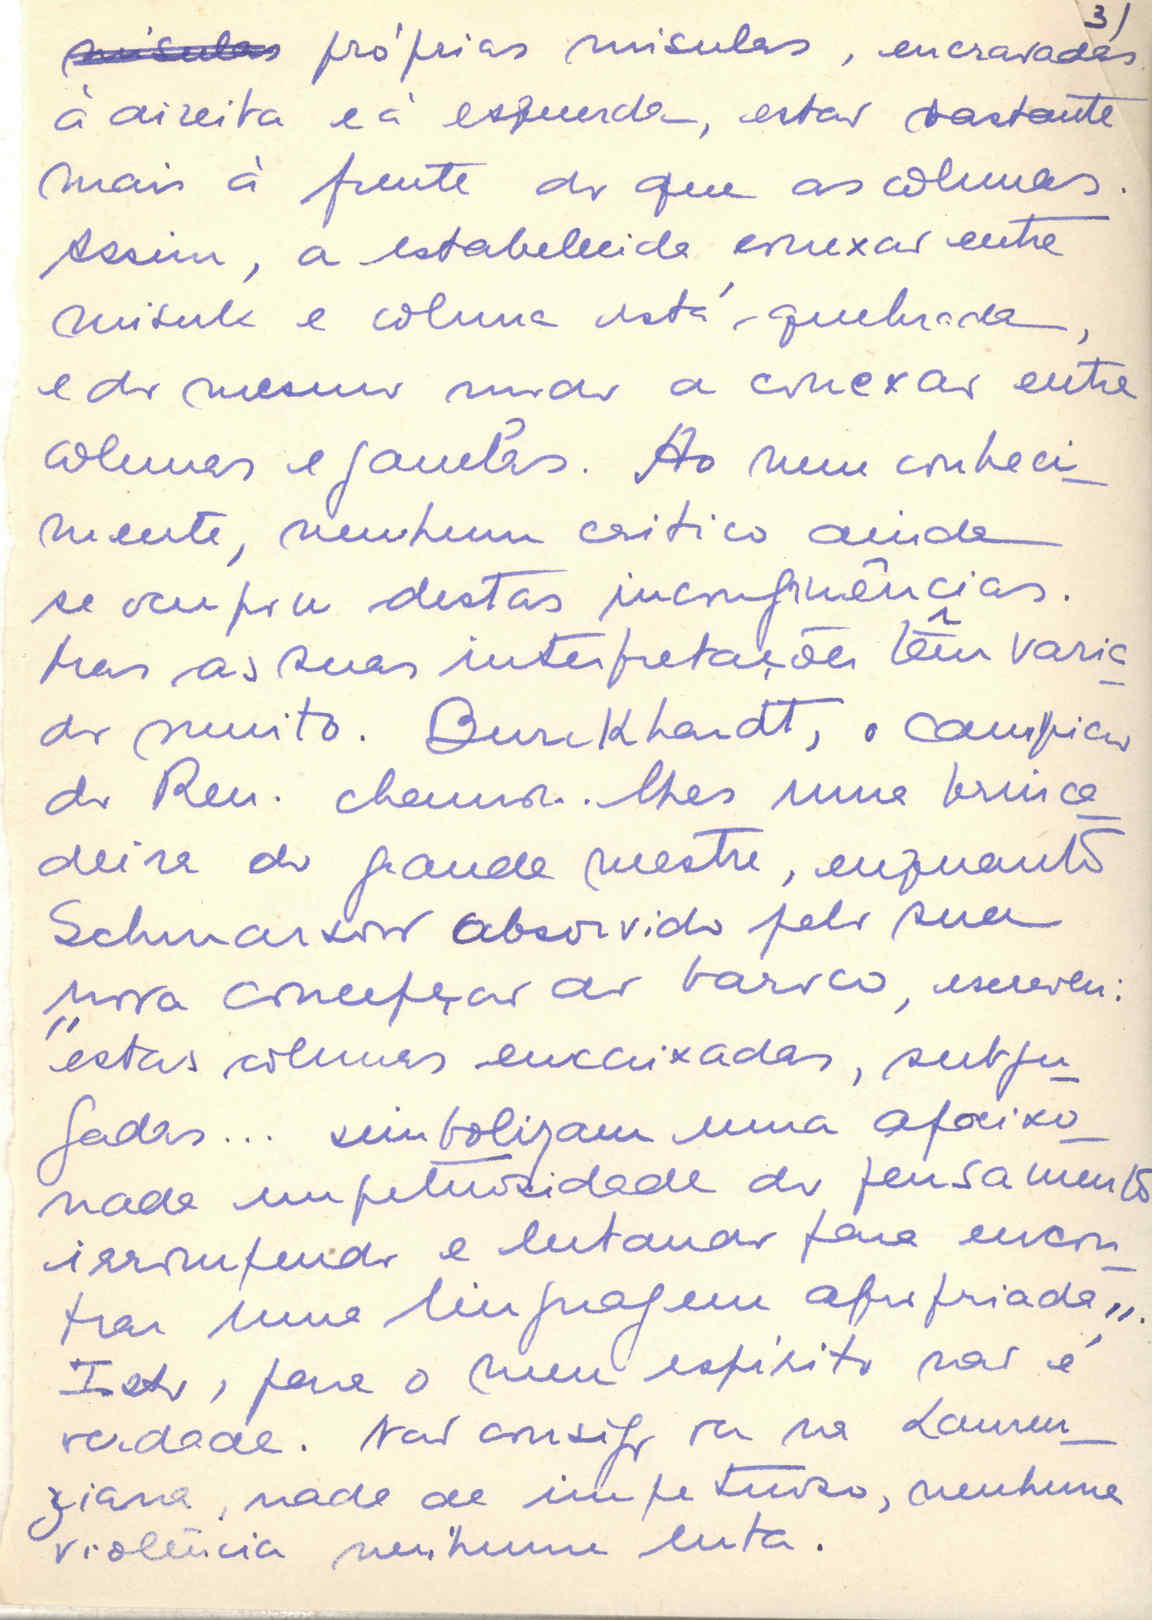 3/
próprias misulas, encravadas
à direita e à esquerda, estar bastante
mais à frente do que as colunas.
Assim, a estabelecida conexão entre
misula e coluna está quebrada,
e do mesmo modo a conexão entre
colunas e janelas. Ao meu conheci-
mente, nenhum critico ainda
se ocupou destas incongruências.
Mas as suas interpretações têm varia
do muito. Burckhardt, o campião
do Ren. chamou-lhes uma brinca
deira do grande mestre, enquanto
Schmarsow absorvido pela sua
nova concepção do barroco, escreveu:
"estas colunas encaixadas, subju
gadas... simbolizam uma apaixo
nada impetuosidade do pensamento
irrompendo e lutando para encon
trar uma linguagem apropriada".
Isto, para o meu espírito não é
verdade. Não consigo ver na Lauren
ziana, nada de impetuoso, nenhuma
violência nenhuma luta.